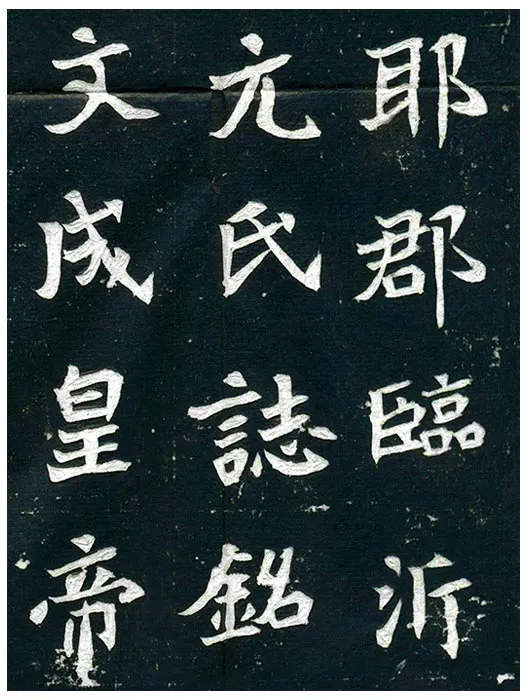 耶郡臨沂
元氏誌銘
文成皇帝